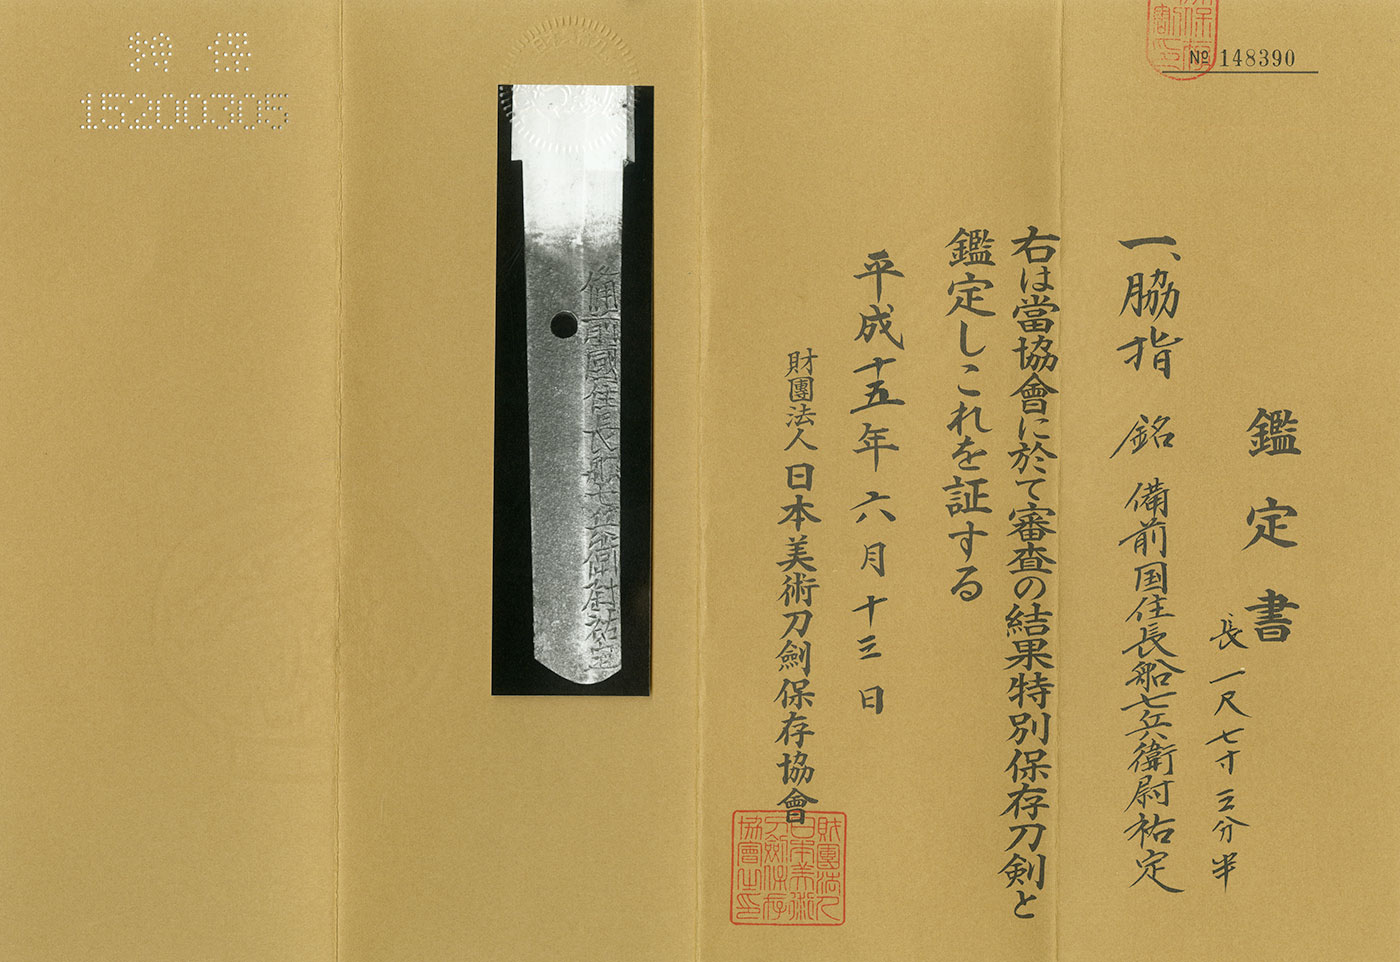 № 148390
鑑定書
一、脇指 銘 備前国住長船七兵衛尉祐定
長 一尺七寸三分半
右は當協會に於て審査の結果特別保存刀剣と
鑑定しこれを証する
平成十五年六月十三日
財團法人日本美術刀劍保存協會
財團法人日本美術刀劍保存協會之印
備前國住長船七兵衛尉祐定
特保
15200305